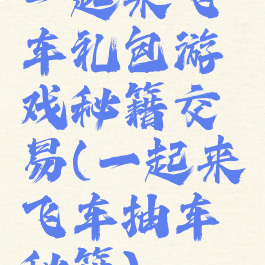 一起来飞
车礼包游
戏秘籍交
易(一起来
飞车抽车
秘籍)